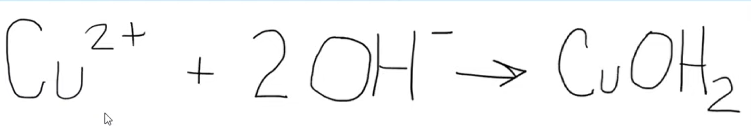 Cu²⁺ + 2OH⁻ → CuOH₂